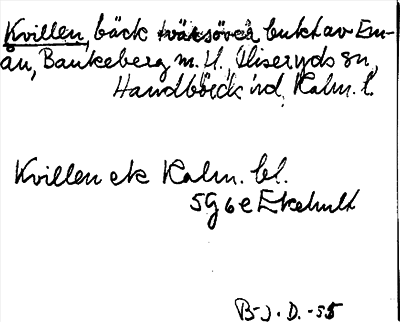 Kvillen, bäck tvärsöver bukt av Em-
ån, Bankeberg m. H. Fliseryds sn,
Handbörds hd, Kalm. l.
Kvillen ek Kalm. bl.
5G 6e Ekehult
B-J. D. -55